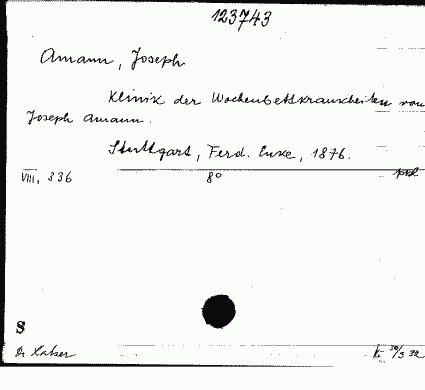 123743
Amann, Joseph
Klinik der Wochenbettskrankheiten von
Joseph Amann.
Stuttgart, Ferd. Enke, 1876.
VIII, 336 8°
S
Dr